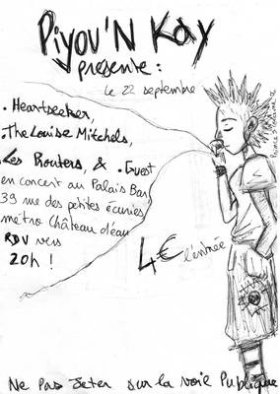 Piyou'N Kay
présente:
le 22 septembre
. Heartseeker,
. The Louise Mitchels,
Les Prouters, & . Guest
en concert au Palais Bar,
39 rue des petites écuries
métro Château d'eau
RDV vers
20h !
4€ l'entrée
Ne pas jeter sur la voie Publique